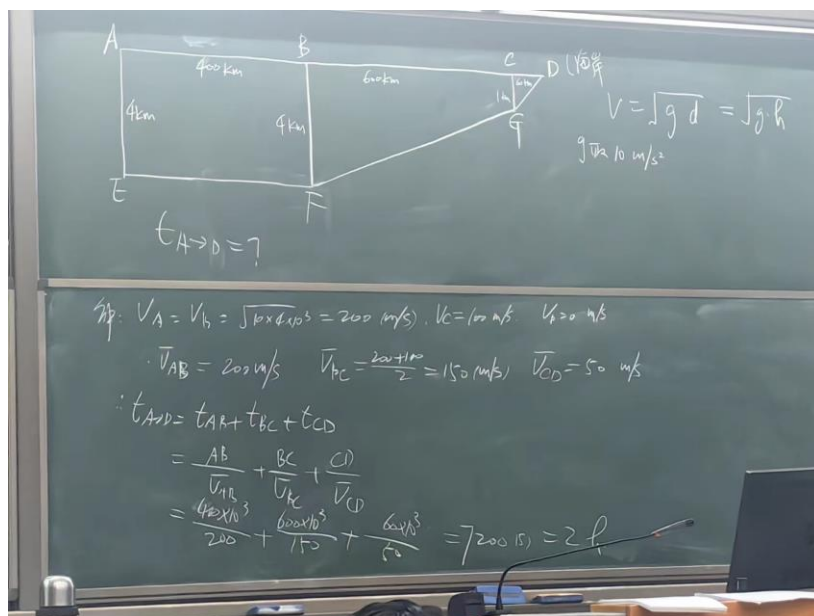 A B C D (海岸
400km 600km 60km
4km 4km 1km
G
E F
V = √g d = √g·h
g取 10 m/s²
t A→D = ?
解: V_A = V_B = √10×4×10³ = 200 (m/s). V_C = 100 m/s. V_D = 0 m/s
V̄_AB = 200 m/s V̄_BC = (200+100)/2 = 150 (m/s) V̄_CD = 50 m/s
∴ t A→D = t_AB + t_BC + t_CD
= AB/V̄_AB + BC/V̄_BC + CD/V̄_CD
= 400×10³/200 + 600×10³/150 + 60×10³/50 = 7200 (s) = 2 h